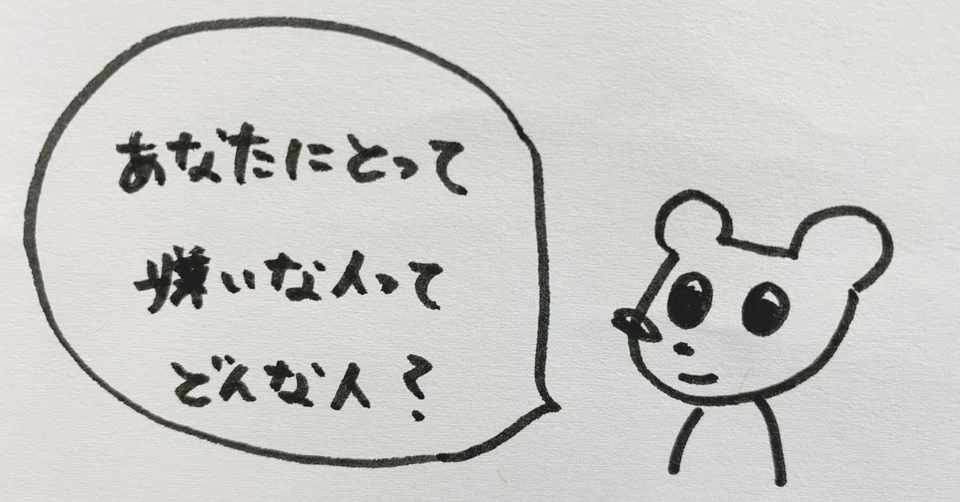 あなたにとって
嫌いな人って
どんな人?